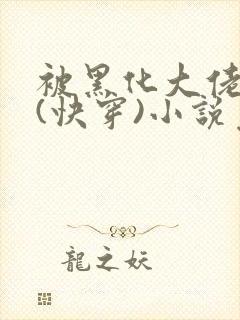 被黑化大佬
(快穿)小说
龍之妖